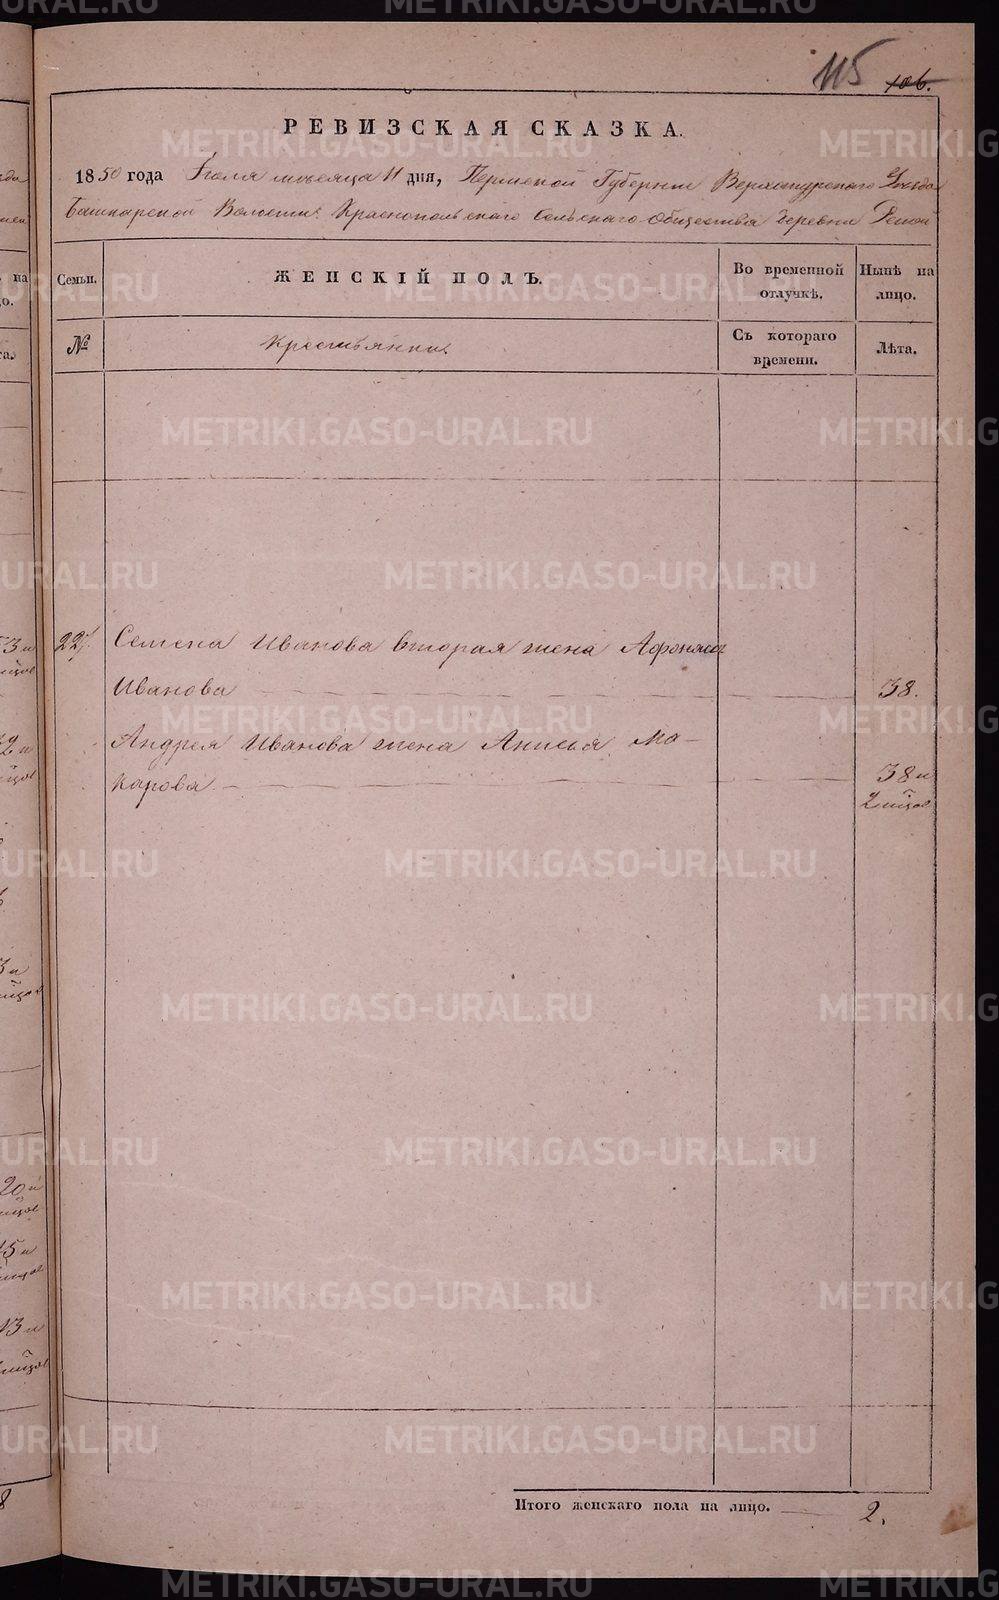 115 106.
РЕВИЗСКАЯ СКАЗКА.
1850 года Іюля месяца 11 дня, Пермской Губерніи Верхотурскаго Уѣзда
Башкарской Волости Краснопольскаго Сельскаго Общества деревни
Семьи. ЖЕНСКІЙ ПОЛЪ. Во временной отлучкѣ. Нынѣ на лицо.
№ Крестьянки. Съ котораго времени. Лѣта.
22. Семена Иванова вторая жена Афонасья
Иванова 38.
Андрея Иванова жена Анисья Ма-
карова 38 и
2 мѣцов
Итого женскаго пола на лицо. 2.
METRIKI.GASO-URAL.RU